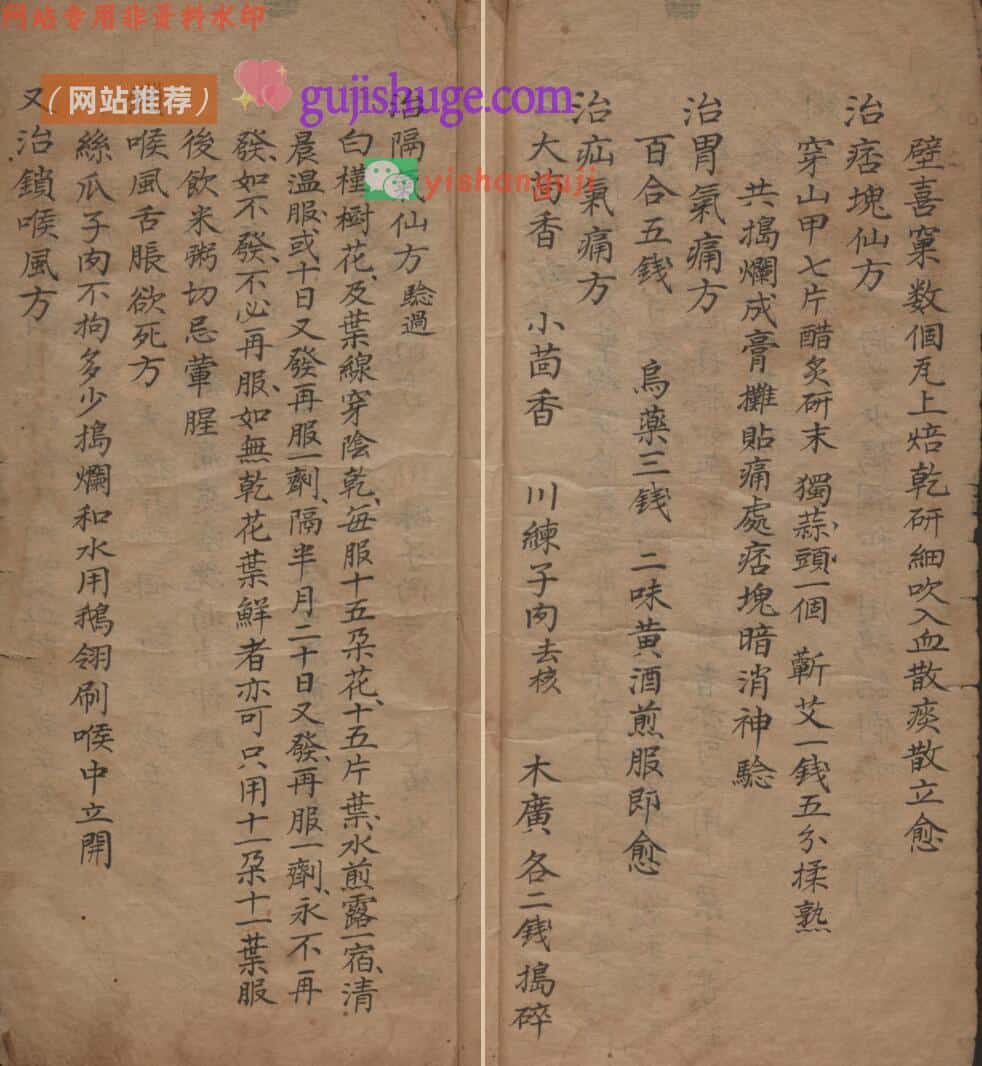 网站专用非资料水印
（网站推荐）
gujishuge.com
yishanguji
壁喜窠数個瓦上焙乾研細吹入血散痰散立愈
治痞塊仙方
穿山甲七片醋炙研末 獨蒜頭一個 蘄艾一錢五分揉熟
共搗爛成膏攤貼痛處痞塊暗消神騐
治胃氣痛方
百合五錢 烏藥三錢 二味黃酒煎服即愈
治疝氣痛方
大茴香 小茴香 川練子肉去核 木廣各二錢搗碎
治隔仙方 騐過
白槿樹花、及葉線穿陰乾、每服十五朵花、十五片葉、水煎露一宿、清
晨温服、或十日又發再服一劑、隔半月二十日又發、再服一劑、永不再
發、如不發、不必再服、如無乾花葉鮮者亦可只用十一朵十一葉服
後飲米粥切忌葷腥
喉風舌脹欲死方
絲瓜子肉不拘多少搗爛和水用鵝翎刷喉中立開
又治鎖喉風方